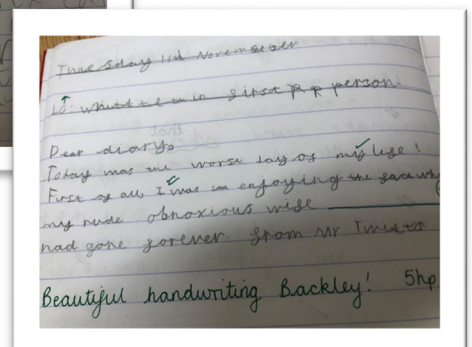 Tuesday 11th November
Lo: in first person
Dear diary,
Today was the worst day of my life!
First of all, I was enjoying the
my rude obnoxious wife
had gone forever. from Mr Twit
Beautiful handwriting Backley! 5hp